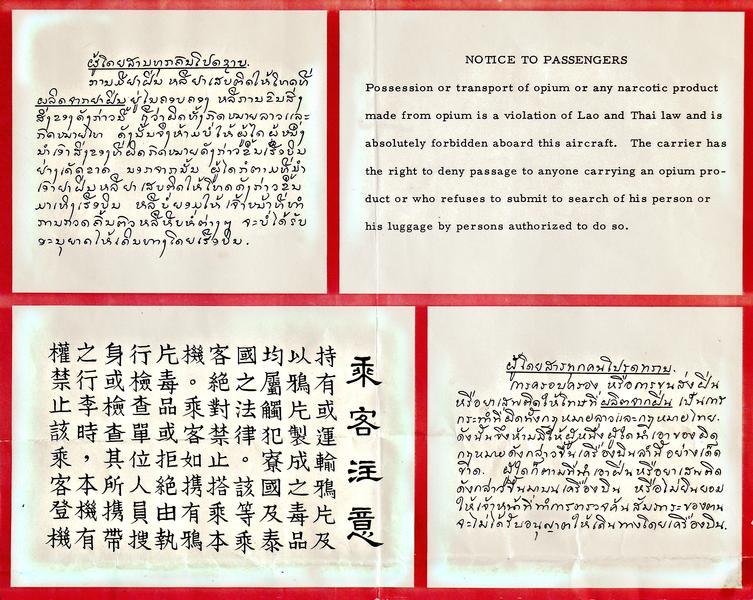 ຜູ້ໂດຍສານທຸກຄົນໂປດຊາບ.
ການມີຢາຝິ່ນ ຫລືຢາເສບຕິດໃຫ້ໂທດທີ່
ຜລິດຈາກຢາຝິ່ນຢູ່ໃນຄອບຄອງ ຫລືການຂົນສົ່ງ
ສິ່ງຂອງດັ່ງກ່າວນີ້ ຖືວ່າຜິດທັງກົດຫມາຍລາວແລະ
ກົດຫມາຍໄທ ດັ່ງນັ້ນຈຶ່ງຫ້າມບໍ່ໃຫ້ຜູ້ໃດຜູ້ຫນຶ່ງ
ນຳເອົາສິ່ງຂອງທີ່ຜິດກົດຫມາຍດັ່ງກ່າວຂຶ້ນເຮືອບິນ
ຢ່າງເດັດຂາດ ນອກຈາກນັ້ນ ຜູ້ໃດກໍຕາມທີ່ນຳ
ເອົາຢາຝິ່ນຫລືຢາເສບຕິດໃຫ້ໂທດດັ່ງກ່າວຂຶ້ນ
ມາເທິງເຮືອບິນ ຫລືບໍ່ຍອມໃຫ້ເຈົ້າຫນ້າທີ່ທຳ
ການກວດຄົ້ນຕົວຫລືຫີບຫໍ່ຕ່າງໆ ຈະບໍ່ໄດ້ຮັບ
ອະນຸຍາດໃຫ້ເດີນທາງໂດຍເຮືອບິນ.
NOTICE TO PASSENGERS
Possession or transport of opium or any narcotic product
made from opium is a violation of Lao and Thai law and is
absolutely forbidden aboard this aircraft. The carrier has
the right to deny passage to anyone carrying an opium pro-
duct or who refuses to submit to search of his person or
his luggage by persons authorized to do so.
乘客注意
持有或運輸鴉片及
以鴉片製成之毒品
均屬觸犯寮國及泰
國之法律。該等乘
客絕對禁止搭乘本
機。乘客如携有鴉
片毒品或拒絕由執
行檢查單位人員搜
身或檢查其所携帶
之行李時，本機有
權禁止該乘客登機
ผู้โดยสารทุกคนโปรดทราบ.
การครอบครอง หรือการขนส่งฝิ่น
หรือยาเสพติดให้โทษที่ผลิตจากฝิ่น เป็นการ
กระทำที่ผิดทั้งกฎหมายลาวและกฎหมายไทย.
ดังนั้นจึงห้ามมิให้ผู้หนึ่งผู้ใดนำเอาของผิด
กฎหมายดังกล่าวขึ้นเครื่องบินลำนี้อย่างเด็ด
ขาด. ผู้ใดก็ตามที่นำเอาฝิ่นหรือยาเสพติด
ดังกล่าวขึ้นมาบนเครื่องบิน หรือไม่ยินยอม
ให้เจ้าหน้าที่ทำการตรวจค้นสัมภาระของตน
จะไม่ได้รับอนุญาตให้เดินทางโดยเครื่องบิน.